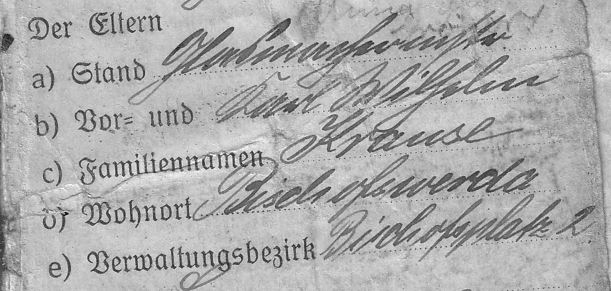 Der Eltern
a) Stand Glasmachermstr
b) Vor= und Karl Wilhelm
c) Familiennamen Krause
d) Wohnort Bischofswerda
e) Verwaltungsbezirk Bischofsplatz 2